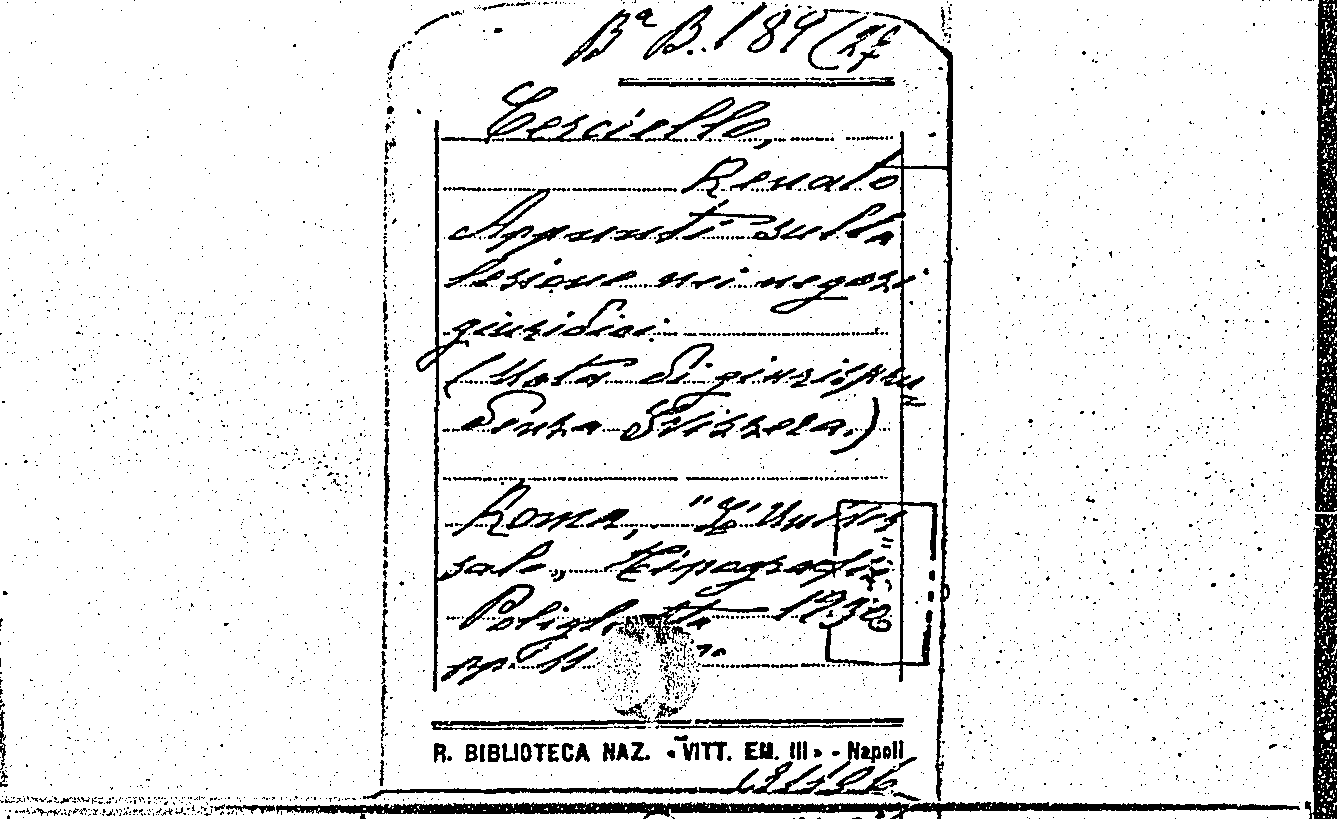 Bª B. 189 (27
Cerciello,
Renato
Appunti sulla
lesione nei negozi
giuridici.
(Nota di giurispru=
denza Svizzera.)
Roma, "L'Univer
sale", Tipografia
Poliglotta 1930
pp. 11
R. BIBLIOTECA NAZ. «VITT. EM. III» - Napoli